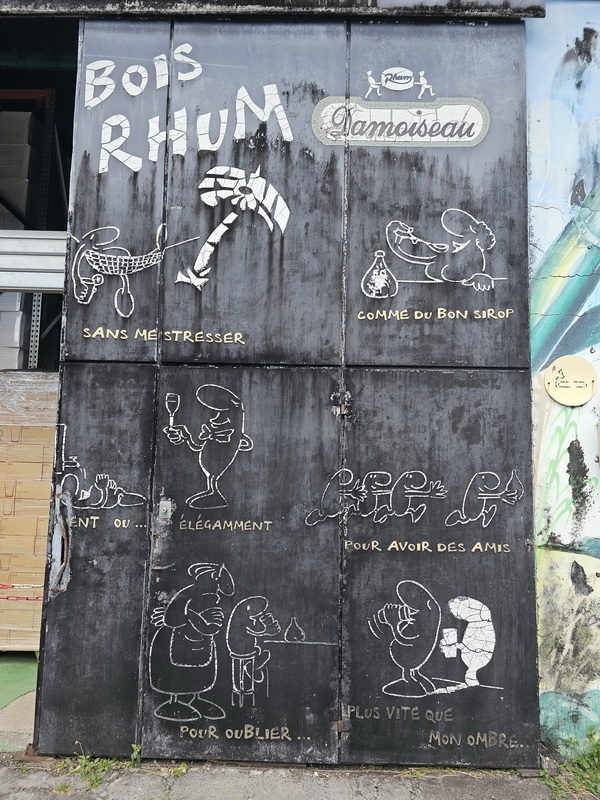 BOIS
RHUM
Rhum
Damoiseau
SANS ME STRESSER
COMME DU BON SIROP
ENT OU ...
ÉLÉGAMMENT
POUR AVOIR DES AMIS
POUR OUBLIER ...
PLUS VITE QUE
MON OMBRE.